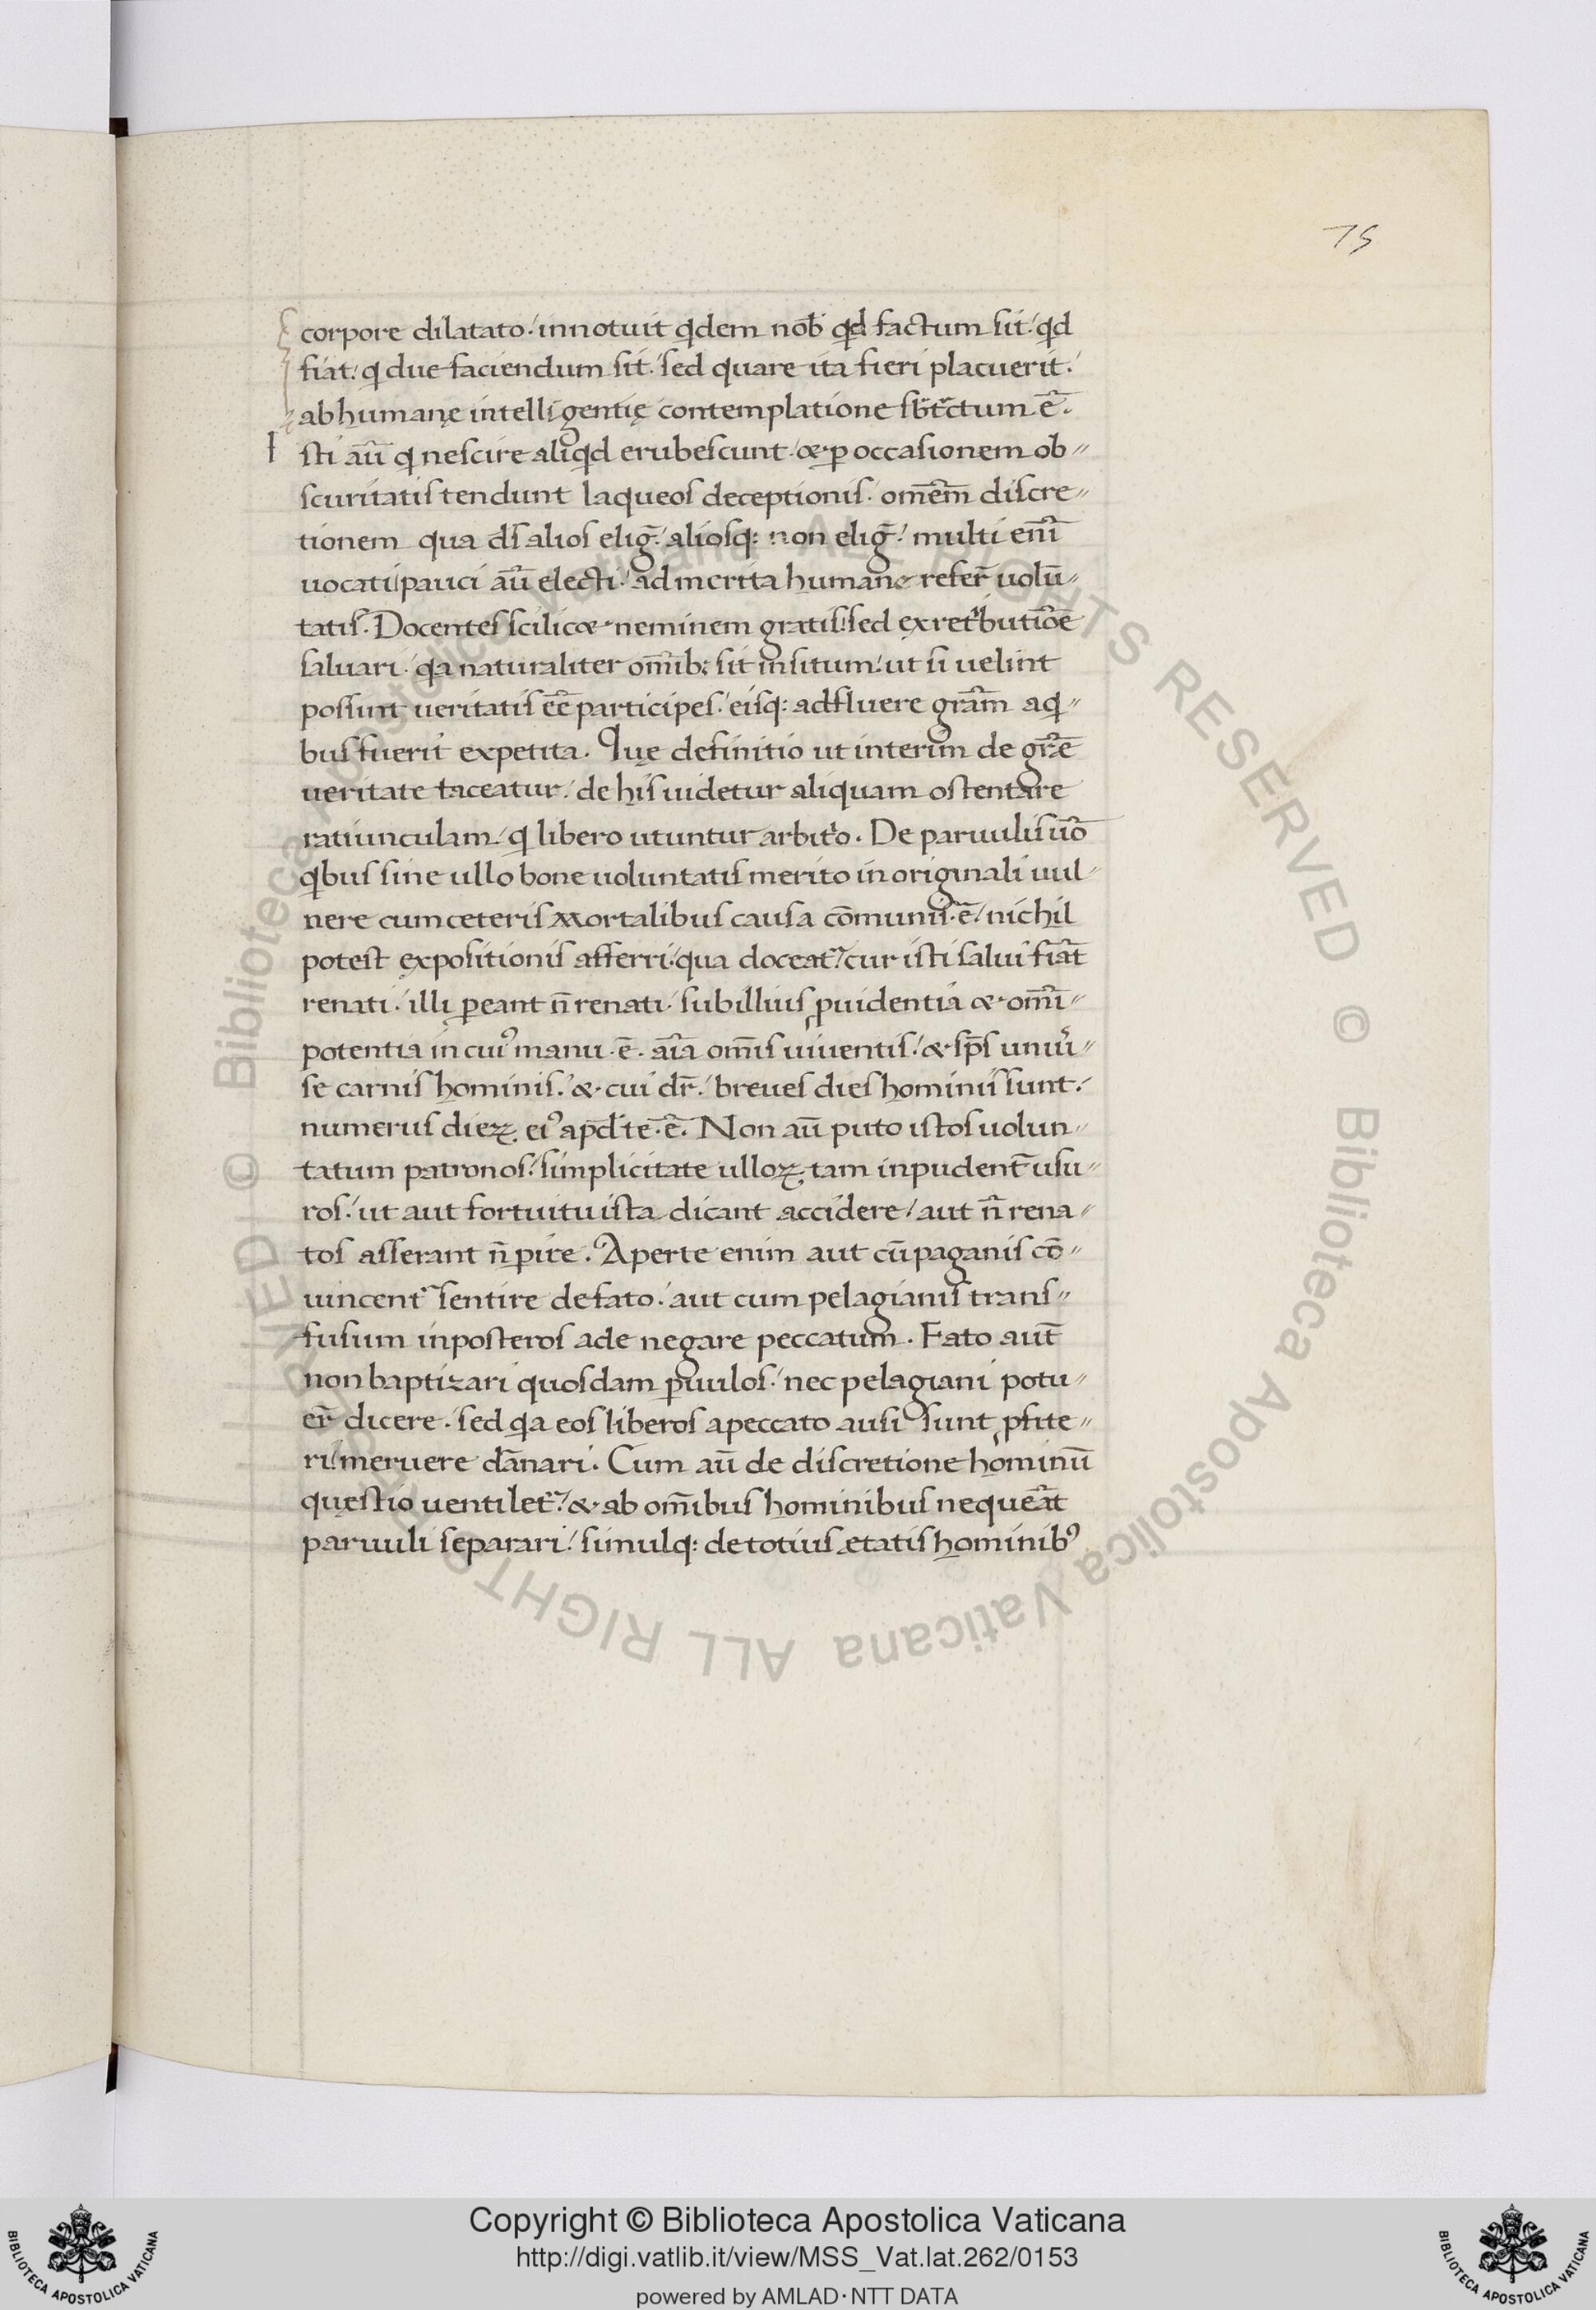 75
corpore dilatato. innotuit qdem nob̄ qd factum sit. qd
fiat. q due faciendum sit. sed quare ita fieri placuerit.
ab humanę intelligentię contemplatione sbt̄ctum ē.
I sti aū q nescire aliqd erubescunt. & ꝑ occasionem ob〃
scuritatis tendunt laqueos deceptionis. om̄em̄ discre〃
tionem qua ds̄ alios elig̃. aliosq: non elig̃. multi enī
uocati pauci aū electi. ad merita humanę refer̄ uolū〃
tatis. Docentes scilic& neminem gratis sed ex retⁱbutiōe
saluari. qa naturaliter om̄ib; sit insitum. ut si uelint
possint ueritatis eē participes. eisq: adfluere grām̄ aq〃
bus fuerit expetita. Quę definitio ut interim de grē
ueritate taceatur. de his uidetur aliquam ostentare
ratiunculam. q libero utuntur arbitⁱo. De paruulis uō
qbus sine ullo bone uoluntatis merito in originali uul〃
nere cum ceteris mortalibus causa cōmunis. ē. nichil
potest expositionis afferri. qua doceat᷑ cur isti salui fiāt
renati. illi ꝑeant n̄ renati. sub illius ꝓuidentia & om̄i〃
potentia in cuiꝰ manu. ē. aīa om̄is uiuentis. & sp̄s uniū〃
se carnis hominis. & cui dr̄. breues dies hominis sunt.
numerus dieꝝ eiꝰ apd te. ē. Non aū puto istos uolun〃
tatum patronos. simplicitate ulloꝝ tam inpudent̄ usu〃
ros. ut aut fortuitu ista dicant accidere. aut n̄ rena〃
tos asserant n̄ ꝑire. Aperte enim aut cū paganis cō〃
uincent᷑ sentire de fato. aut cum pelagianis trans〃
fusum in posteros ade negare peccatum. Fato aut̄
non baptizari quosdam ꝑuulos. nec pelagiani potu〃
er̄ dicere. sed qa eos liberos apeccato ausi sunt ꝓfite〃
ri. meruere dānari. Cum aū de discretione hominū
quęstio uentilet᷑. & ab om̄ibus hominibus nequeāt
paruuli separari. simulq: de totius ætatis hominibꝰ
© Biblioteca Apostolica Vaticana ALL RIGHTS RESERVED © Biblioteca Apostolica Vaticana ALL RIGHTS RESERVED
Copyright © Biblioteca Apostolica Vaticana
http://digi.vatlib.it/view/MSS_Vat.lat.262/0153
powered by AMLAD·NTT DATA
BIBLIOTECA APOSTOLICA VATICANA
BIBLIOTECA APOSTOLICA VATICANA